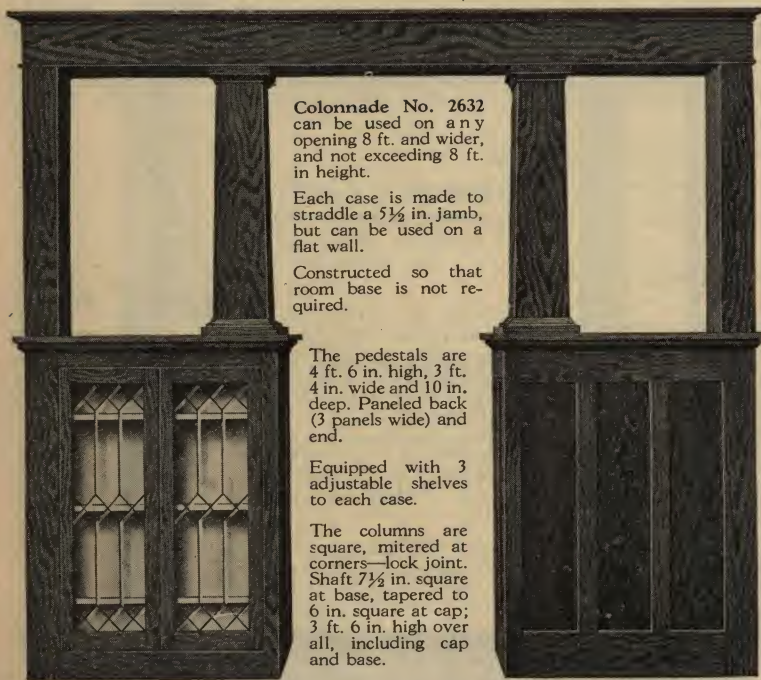 Colonnade No. 2632
can be used on any
opening 8 ft. and wider,
and not exceeding 8 ft.
in height.
Each case is made to
straddle a 5½ in. jamb,
but can be used on a
flat wall.
Constructed so that
room base is not re-
quired.
The pedestals are
4 ft. 6 in. high, 3 ft.
4 in. wide and 10 in.
deep. Paneled back
(3 panels wide) and
end.
Equipped with 3
adjustable shelves
to each case.
The columns are
square, mitered at
corners—lock joint.
Shaft 7½ in. square
at base, tapered to
6 in. square at cap;
3 ft. 6 in. high over
all, including cap
and base.